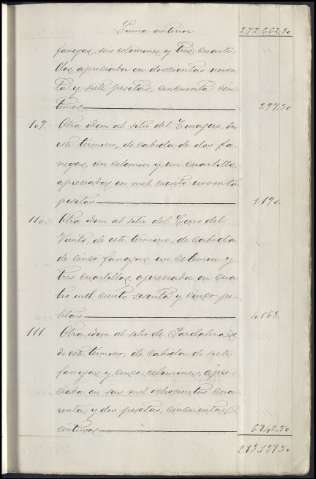 Suma anterior 272.602,50
fanegas, seis celemines y tres cuarti-
llos, apreciada en doscientas noven-
ta y siete pesetas, cincuenta cén-
timos 297,50
109 Otra idem al sitio del en
este término, de cabida de dos fa-
negas, un celemin y un cuartillo,
apreciada en mil ciento noventa
pesetas 1.190
110 Otra idem al sitio del Cerro del
Viento, de este término, de cabida
de cinco fanegas un celemin y
tres cuartillos, apreciada en cua-
tro mil ciento sesenta y cinco pe-
setas 4.165
111 Otra idem al sitio de
de este término, de cabida de siete
fanegas y cinco celemines, apre-
ciada en seis mil ochocientas cuare-
nta y dos pesetas, cincuenta
céntimos 6.842,50